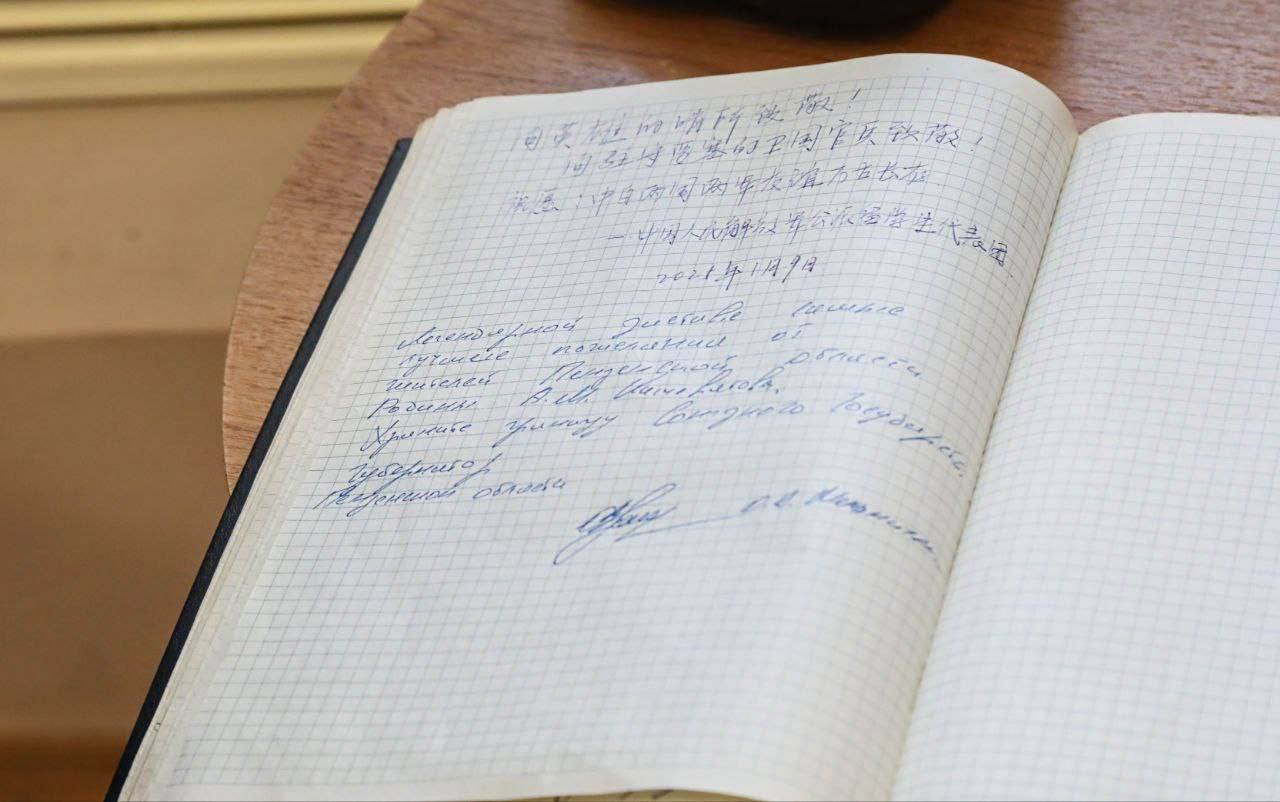 向英雄的哨所致敬！
向驻守要塞的卫国官兵致敬！
祝愿：中白两国两军友谊万古长存
—中国人民解放军公派留学生代表团
2025年1月9日
Легендарной заставе самые
лучшие пожелания от
жителей Пензенской области
Родины А.М. Кижеватова.
Храните границу Союзного Государства.
Губернатор
Пензенской области
О.В. Мельниченко